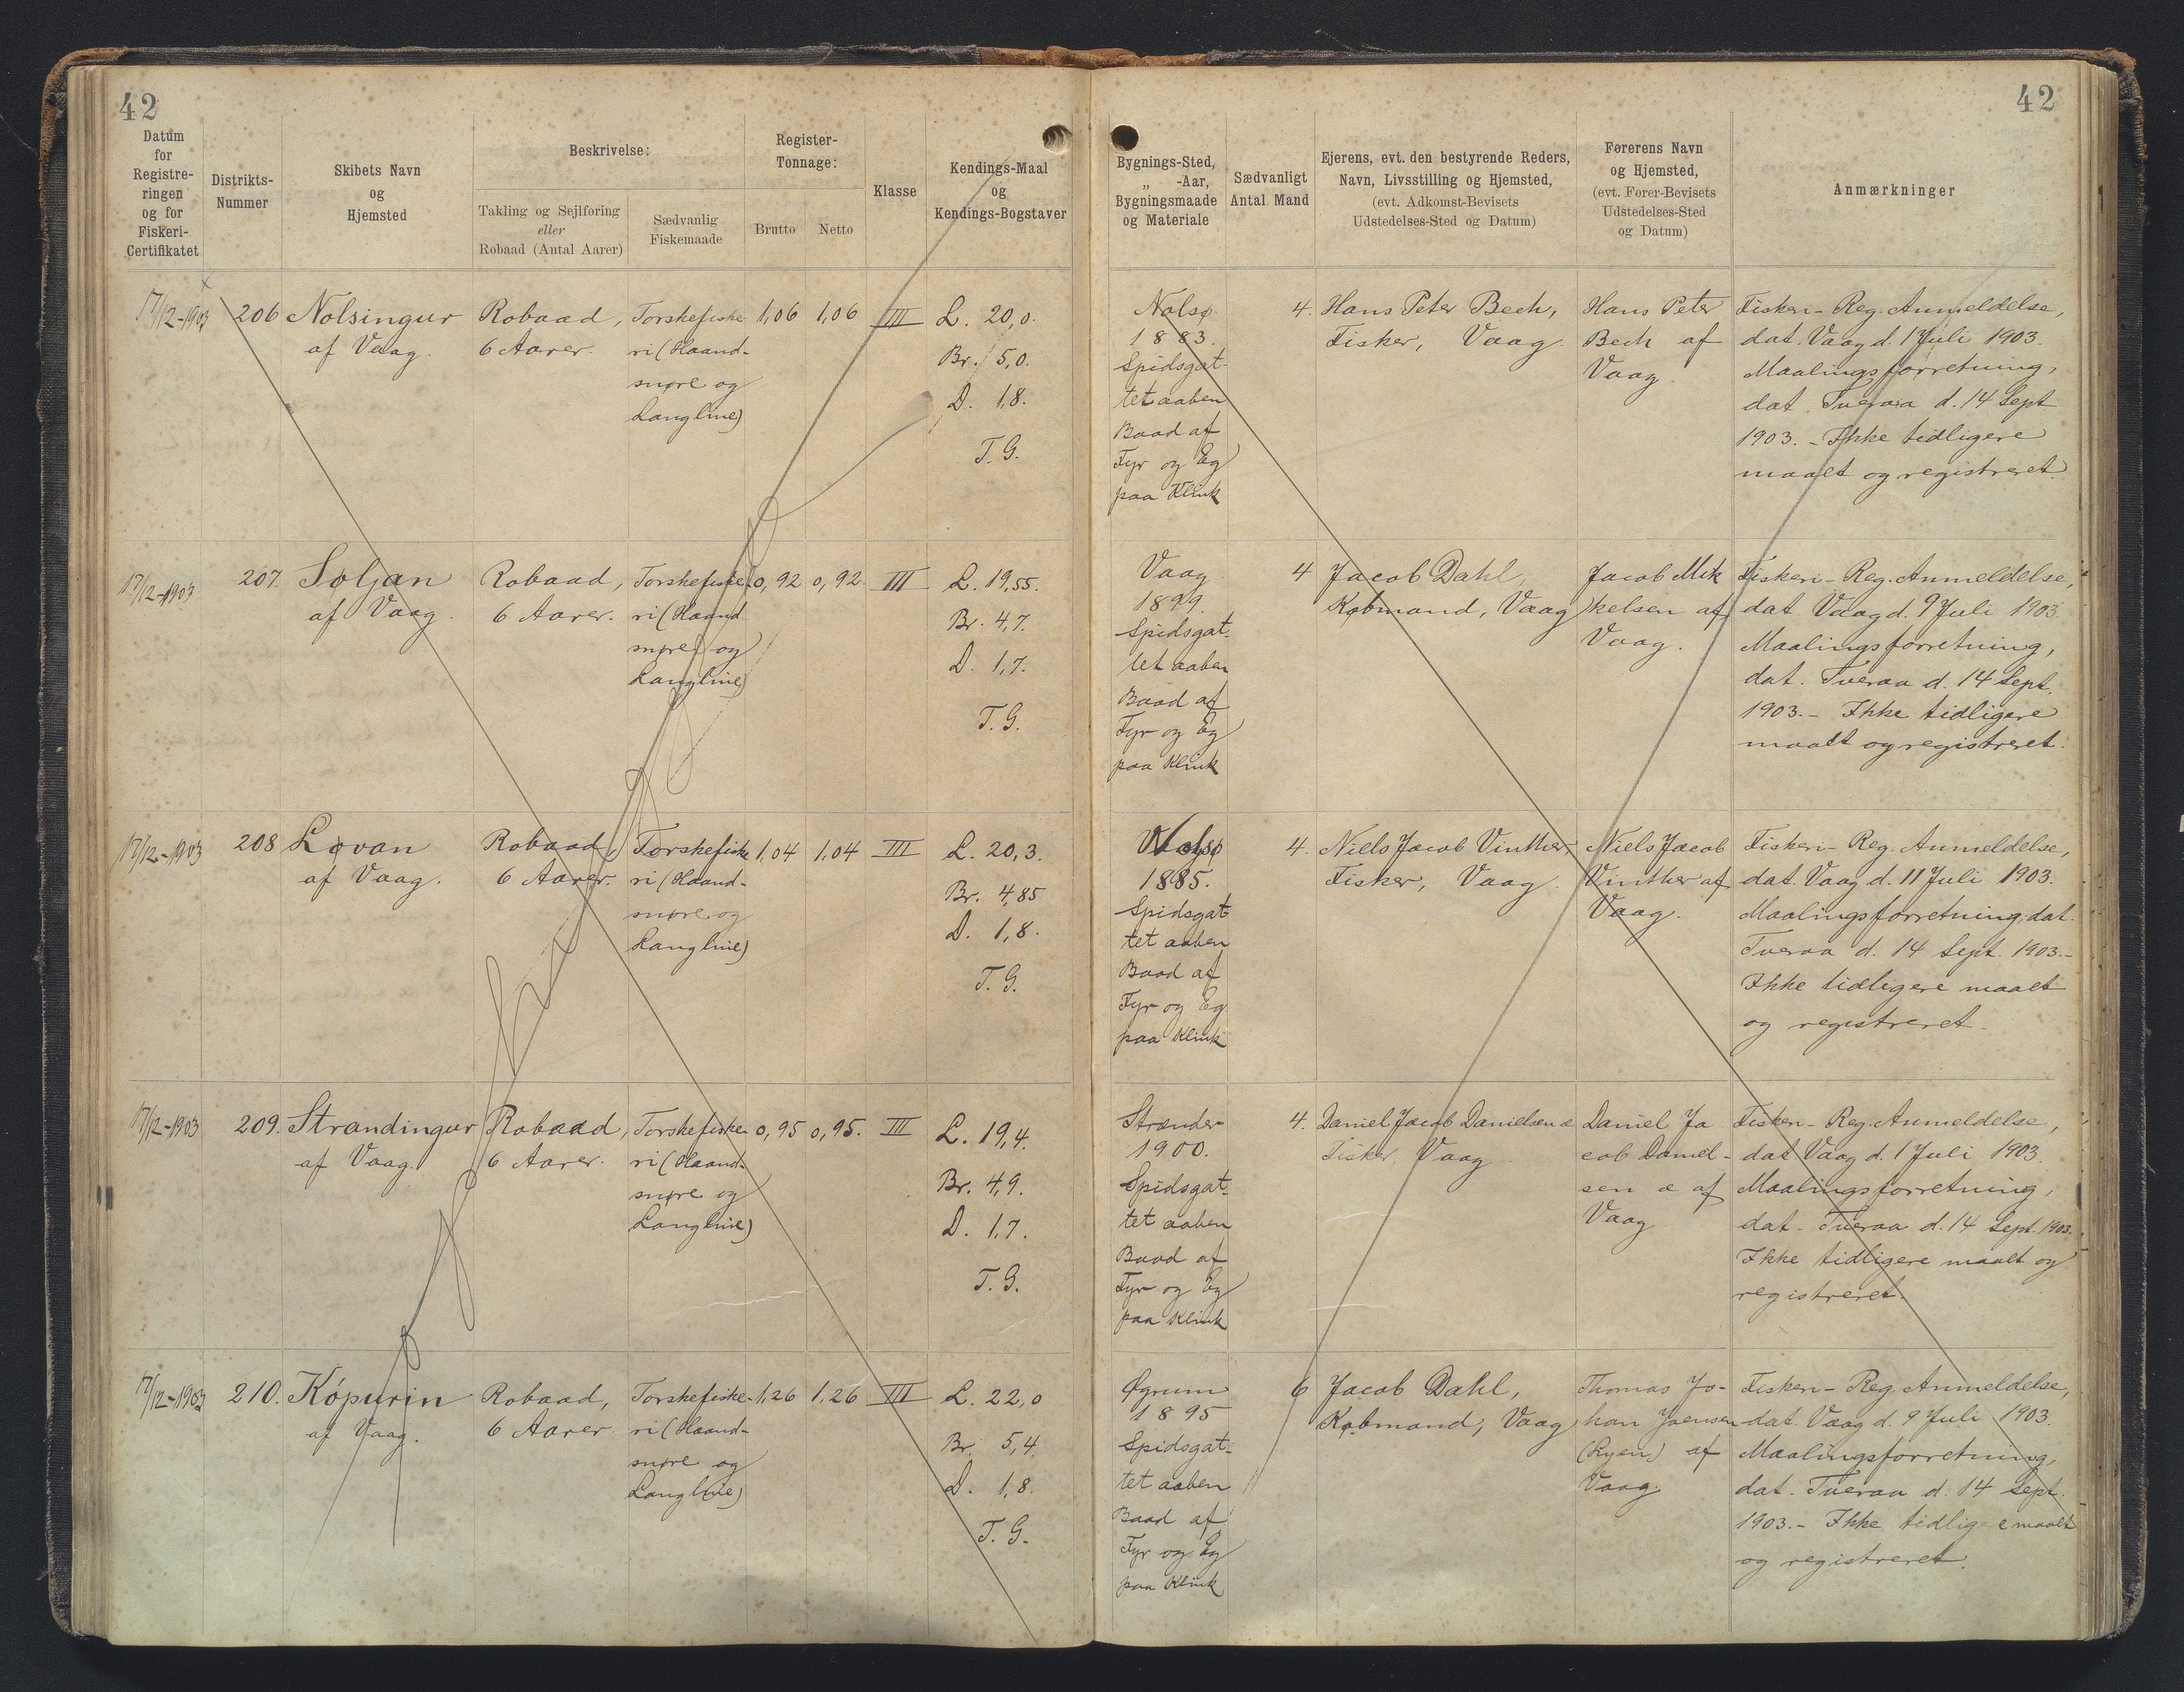 42
42
Datum
for
Registre-
ringen
og for
Fiskeri-
Certifikatet
Distrikts-
Nummer
Skibets Navn
og
Hjemsted
Beskrivelse:
Takling og Sejlføring
eller
Robaad (Antal Aarer)
Sædvanlig
Fiskemaade
Register-
Tonnage:
Brutto
Netto
Klasse
Kendings-Maal
og
Kendings-Bogstaver
Bygnings-Sted,
„ -Aar,
Bygningsmaade
og Materiale
Sædvanligt
Antal Mand
Ejerens, evt. den bestyrende Reders,
Navn, Livsstilling og Hjemsted,
(evt. Adkomst-Bevisets
Udstedelses-Sted og Datum)
Førerens Navn
og Hjemsted,
(evt. Fører-Bevisets
Udstedelses-Sted
og Datum)
Anmærkninger
17/12-1903
206
Nolsingur
af Vaag.
Robaad,
6 Aarer.
Torskefiske-
ri (Haand-
snøre og
Langline)
1,06
1,06
III
L. 20,0.
Br. 5,0.
D. 1,8.
T. G.
Nolsø
1883.
Spidsgat-
tet aaben
Baad af
Fyr og Eg
paa Klink
4.
Hans Peter Bech,
Fisker, Vaag.
Hans Peter
Bech af
Vaag.
Fiskeri-Reg. Anmeldelse,
dat. Vaag d. 1 Juli 1903.
Maalingsforretning,
dat. Tveraa d. 14 Sept
1903. - Ikke tidligere
maalt og registreret.
17/12-1903
207.
Soljan
af Vaag.
Robaad,
6 Aarer.
Torskefiske-
ri (Haand
snøre og
Langline)
0,92
0,92
III
L. 19,55.
Br. 4,7.
D. 1,7.
T. G.
Vaag
1899.
Spidsgat-
tet aaben
Baad af
Fyr og Eg
paa Klink
4
Jacob Dahl,
Købmand, Vaag
Jacob Mik
kelsen af
Vaag.
Fiskeri-Reg. Anmeldelse,
dat Vaag d. 9 Juli 1903.
Maalingsforretning,
dat. Tveraa d. 14 Sept.
1903. - Ikke tidligere
maalt og registreret.
17/12-1903
208
Lovan
af Vaag.
Robaad,
6 Aarer.
Torskefiske
ri (Haand-
snøre og
Langline)
1,04
1,04
III
L. 20,3.
Br. 4,85
D. 1,8.
T. G.
Nolsø
1885.
Spidsgat
tet aaben
Baad af
Fyr og Eg
paa Klink
4.
Niels Jacob Vinther,
Fisker, Vaag.
Niels Jacob
Vinther af
Vaag.
Fiskeri-Reg. Anmeldelse,
dat. Vaag d. 11 Juli 1903.
Maalingsforretning, dat.
Tveraa d. 14 Sept. 1903. -
Ikke tidligere maalt
og registreret.
17/12-1903
209.
Strandingur
af Vaag.
Robaad,
6 Aarer.
Torskefiske-
ri (Haand-
snøre og
Langline)
0,95
0,95.
III
L. 19,4.
Br. 4,9.
D. 1,7.
T. G.
Strænder
1900.
Spidsgat-
tet aaben
Baad af
Fyr og Eg
paa Klink
4.
Daniel Jacob Danielsen æ
Fisker, Vaag
Daniel Ja
cob Daniel-
sen æ af
Vaag
Fiskeri-Reg. Anmeldelse,
dat Vaag d. 1 Juli 1903.
Maalingsforretning,
dat. Tveraa d. 14 Sept. 1903.
Ikke tidligere maalt og
registreret.
17/12-1903
210.
Kópurin
af Vaag.
Robaad,
6 Aarer
Torskefiske-
ri (Haand-
snøre og
Langline)
1,26
1,26
III
L. 22,0
Br. 5,4.
D. 1,8.
T. G.
Øgrum
1895
Spidsgat-
tet aaben
Baad af
Fyr og Eg
paa Klink
6
Jacob Dahl,
Købmand, Vaag
Thomas Jo-
han Joensen
af
Vaag.
Fiskeri-Reg. Anmeldelse,
dat. Vaag d. 9 Juli 1903.
Maalingsforretning,
dat. Tveraa d. 14 Sept.
1903. - Ikke tidligere maalt
og registreret.